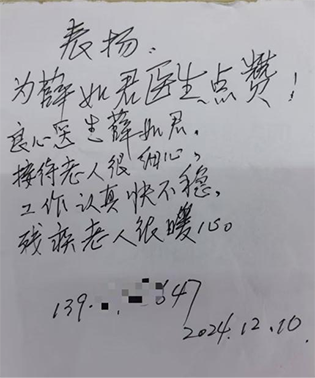 表扬.
为薛如君医生点赞!
良心医生薛如君.
接待老人很细心,
工作认真快不稳.
残疾老人很暖心.
139. 647
2024.12.10.